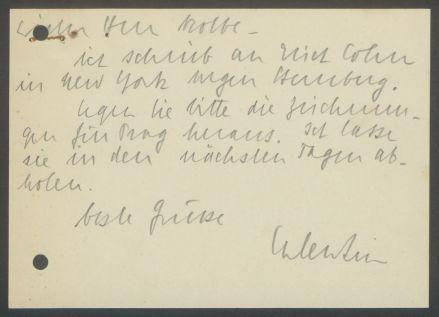 Lieber Herr Kolbe –
ich schrieb an Erich Cohn
in New York wegen Hemberg.
Legen Sie bitte die Zeichnun-
gen für Prag heraus. Ich lasse
sie in den nächsten Tagen ab-
holen.
beste Grüsse
Valentin